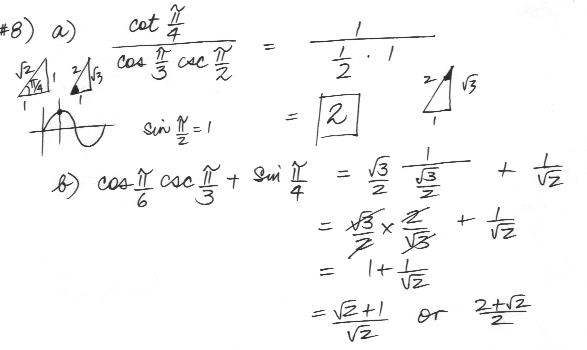 #8) a) cot π/4 / (cos π/3 csc π/2) = 1 / (1/2 · 1)
√2 1 π/4 1
2 √3 1
2 √3 1
sin π/2 = 1 = 2
b) cos π/6 csc π/3 + sin π/4 = √3/2 1/(√3/2) + 1/√2
= √3/2 × 2/√3 + 1/√2
= 1 + 1/√2
= (√2+1)/√2 or (2+√2)/2